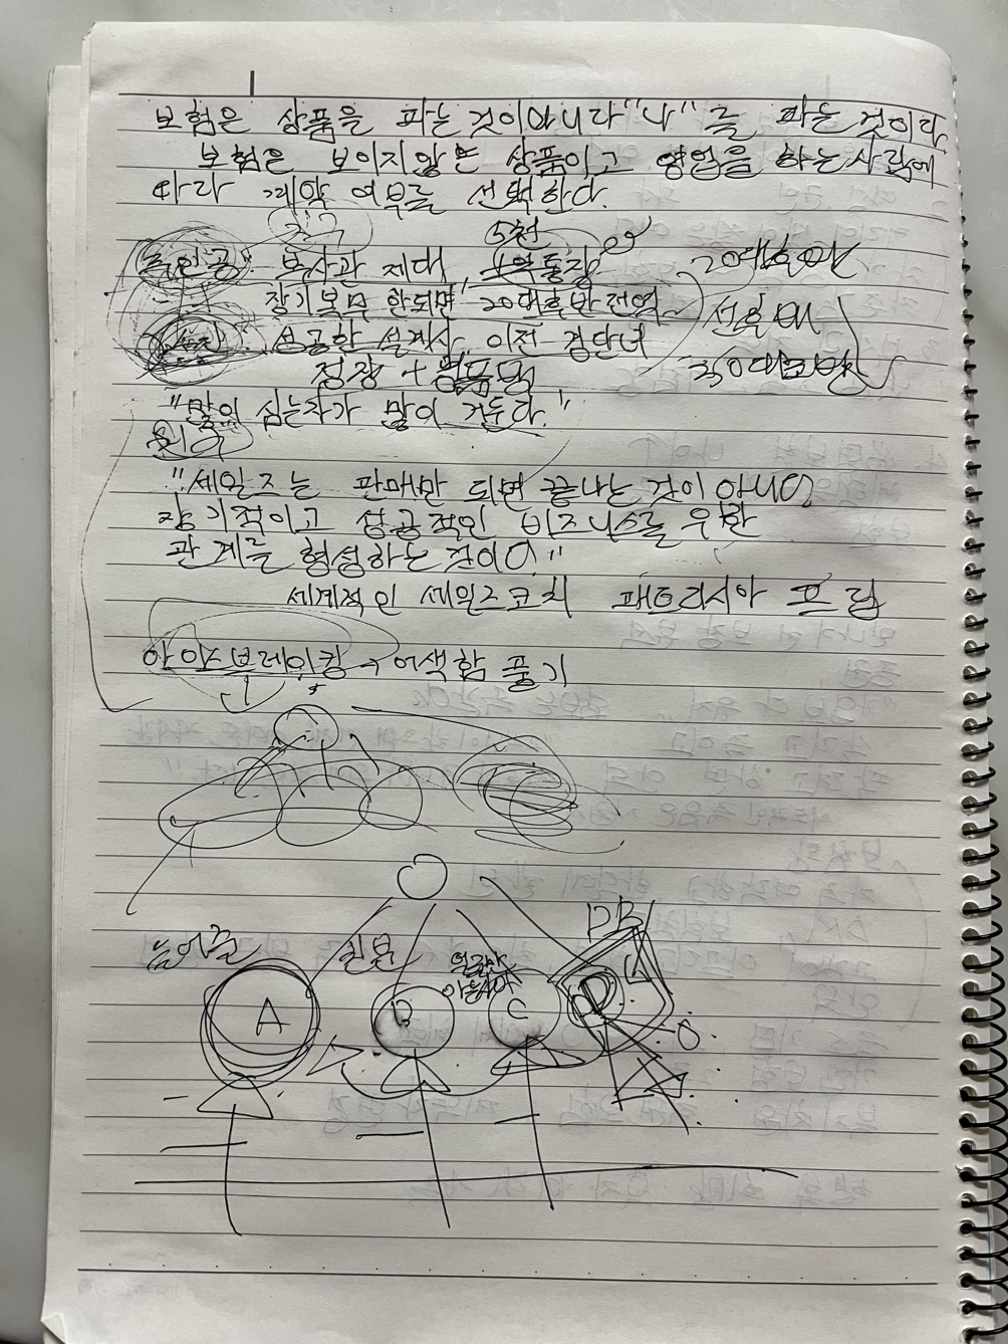 보험은 상품을 파는것이아니다 "나"를 파는것이다
보험은 보이지않는 상품이고 영업을 하는사람에
따라 계약 여부를 선택한다.
5천
주인공 부사관 제대 1억통장
20대후반
장기복무 안되면, 20대후반전역
선후배
성공한 설계사 이전 경단녀
30대초반
정장 + 명품백
"많이 심는자가 많이 거둔다."
"세일즈는 판매만 되면 끝나는 것이 아니라
장기적이고 성공적인 비즈니스를 위한
관계를 형성하는 것이다"
세계적인 세일즈코치 패트리시아 프립
아이스브레이킹 → 어색함 풀기
DB
친분
A
B
C
D